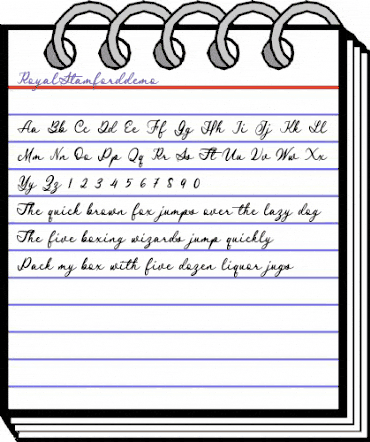 RoyalStamforddemo
Aa Bb Cc Dd Ee Ff Gg Hh Ii Jj Kk Ll
Mm Nn Oo Pp Qq Rr Ss Tt Uu Vv Ww Xx
Yy Zz 1 2 3 4 5 6 7 8 9 0
The quick brown fox jumps over the lazy dog
The five boxing wizards jump quickly
Pack my box with five dozen liquor jugs